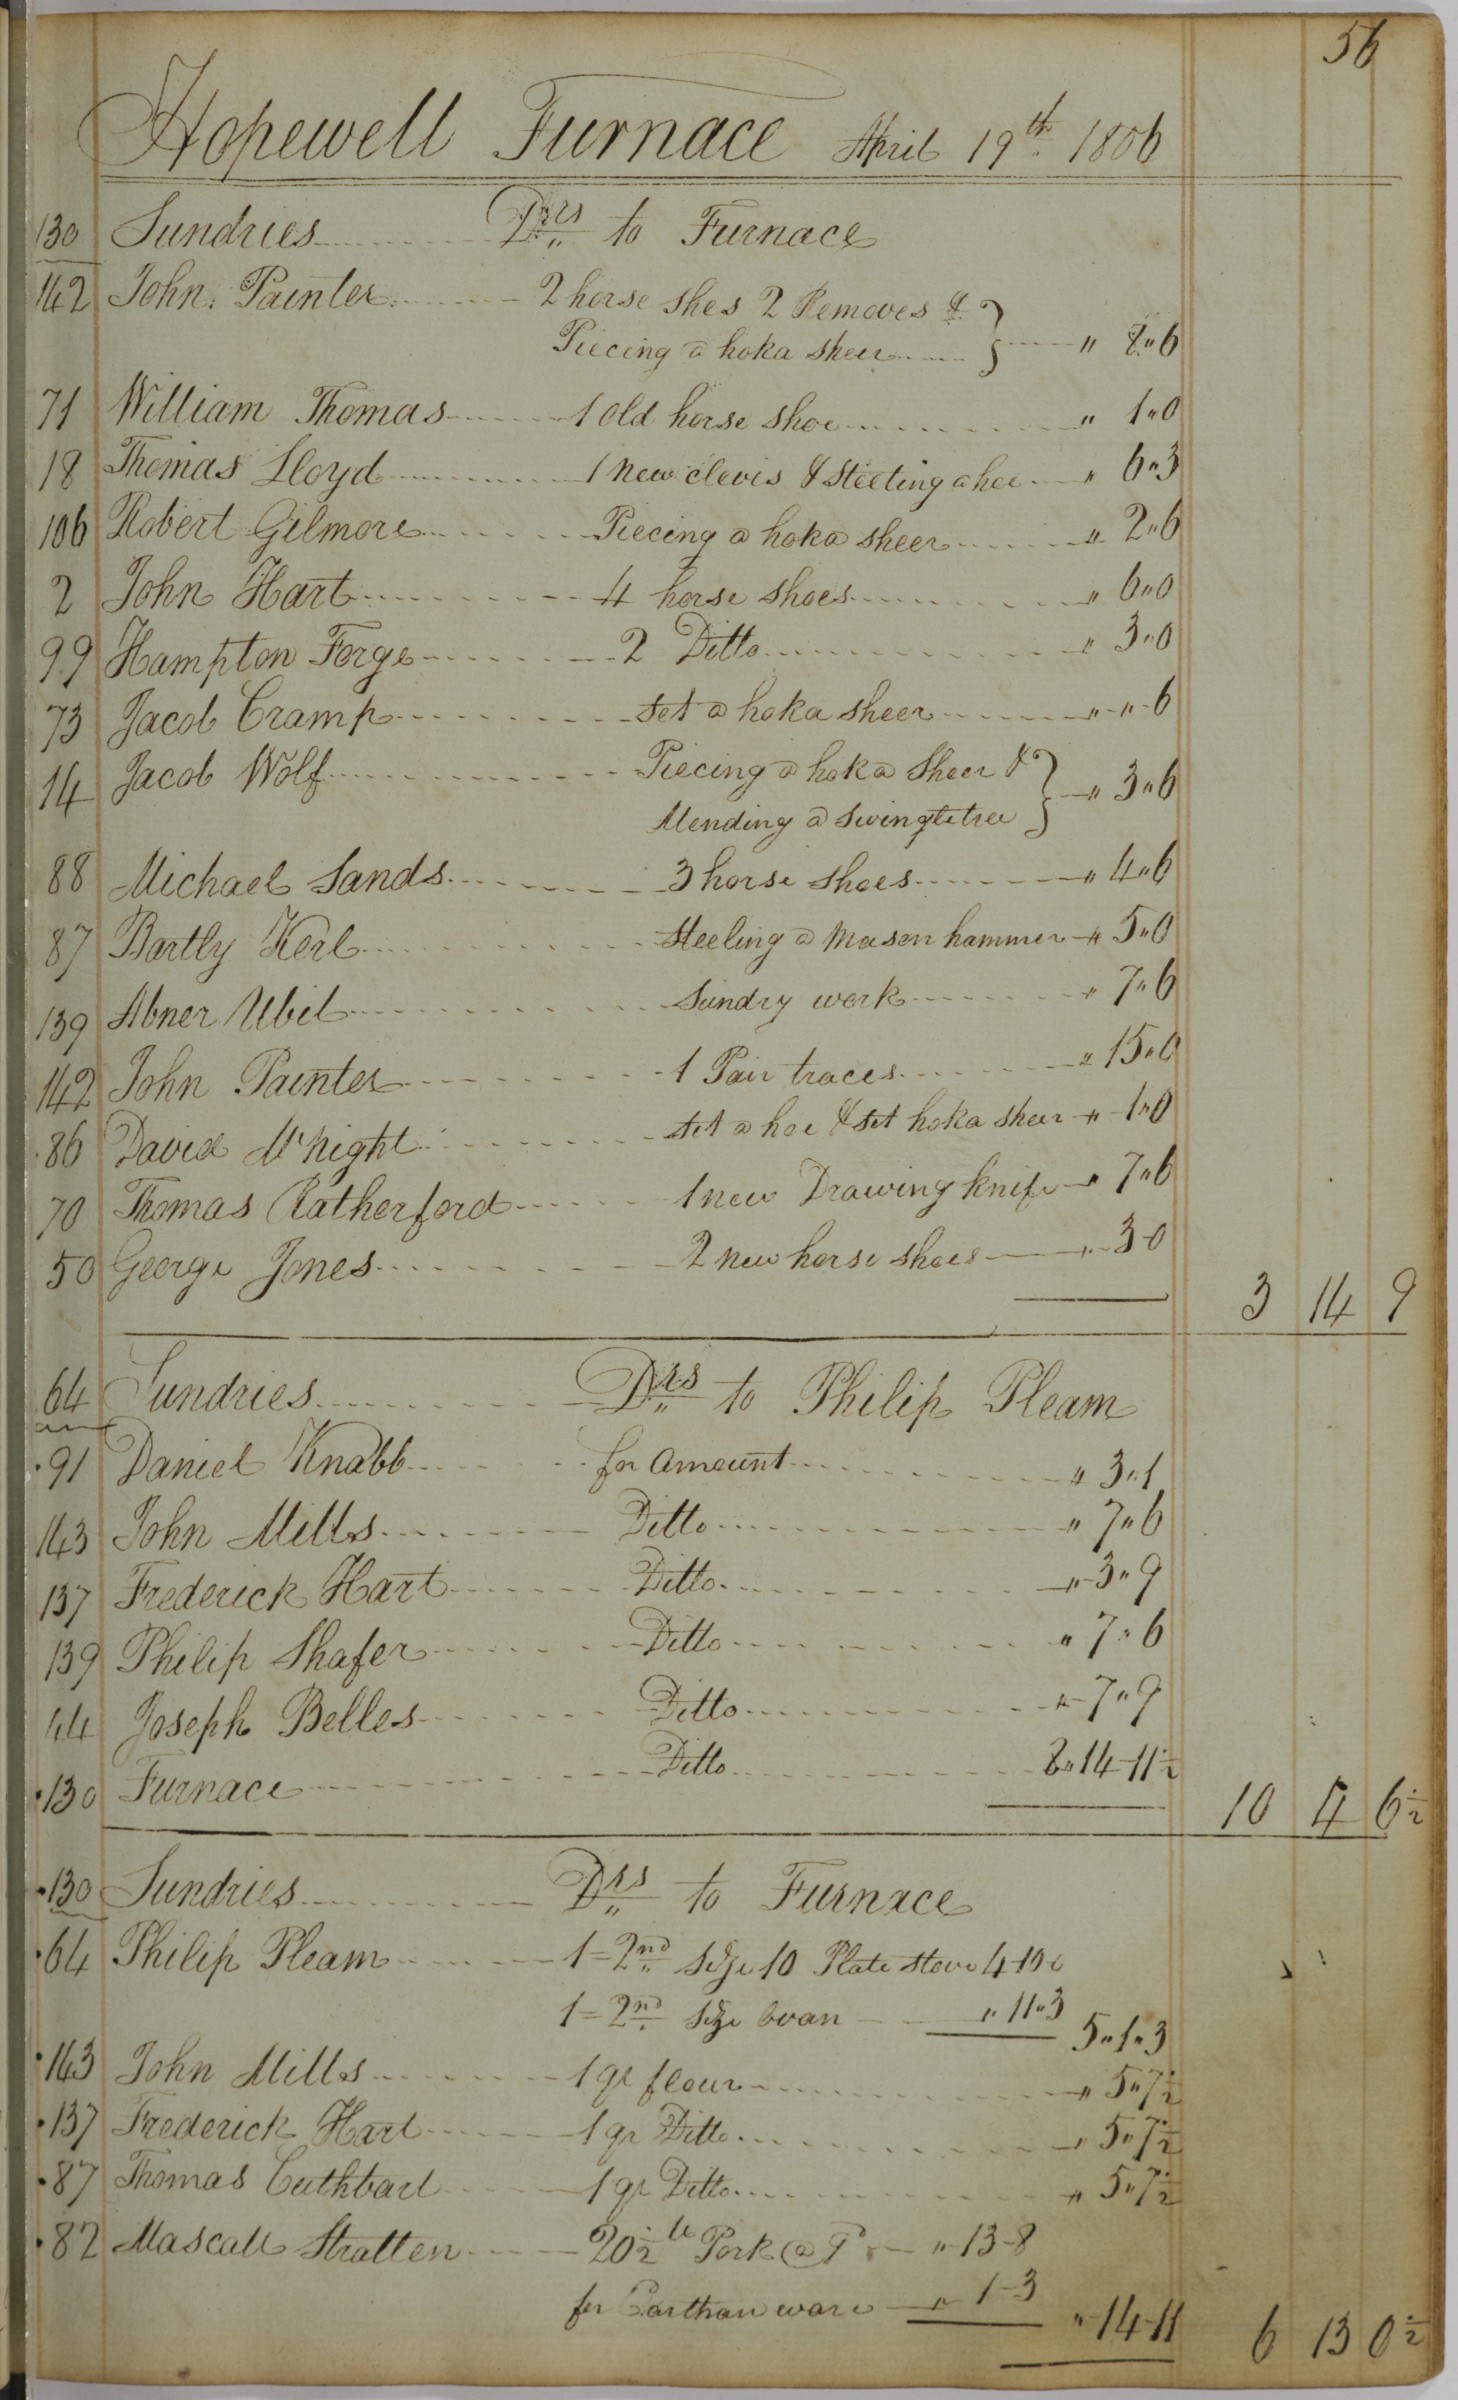 56
Hopewell Furnace April 19th 1806
130 Sundries Drs to Furnace
142 John Painter 2 horse shes 2 Removes &
Piecing a hoka sheer } " 8"6
71 William Thomas 1 old horse shoe " 1"0
18 Thomas Lloyd 1 new clevis & Steeting a hoe " 6"3
106 Robert Gilmore Piecing a hoka sheer " 2"6
2 John Hart 4 horse shoes " 6"0
99 Hampton Forge 2 Ditto " 3"0
73 Jacob Cramp set a hoka sheer " " 6
14 Jacob Wolf Piecing a hoka Sheer &
Mending a Swingletree } " 3"6
88 Michael Sands 3 horse shoes " 4"6
87 Bartly Kerl Steeling a Mason hammer " 5"0
139 Abner Ubil Sundry work " 7"6
142 John Painter 1 Pair traces " 15"0
86 David McNight set a hoe & set hoka sheer " 1"0
70 Thomas Ratherford 1 new Drawing knife " 7"6
50 George Jones 2 new horse shoes " 3-0
3 14 9
64 Sundries Drs to Philip Pleam
91 Daniel Knabb for amount " 3"1
143 John Mills Ditto " 7"6
137 Frederick Hart Ditto " 3"9
139 Philip Shafer Ditto " 7"6
44 Joseph Belles Ditto " 7"9
130 Furnace Ditto 8"14-11½
10 4 6½
130 Sundries Drs to Furnace
64 Philip Pleam 1=2nd Size 10 Plate stove 4-10-0
1=2nd Size Ovan " 11"3 5"1"3
143 John Mills 1 qr flour " 5"7½
137 Frederick Hart 1 qr Ditto " 5"7½
87 Thomas Cuthbart 1 qr Ditto " 5"7½
82 Mascall Stratten 20½ lb Pork @ " 13-8
for Earthan ware " 1-3 " 14-11
6 13 0½